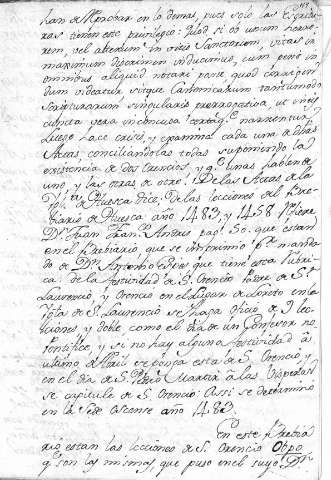 han de Aprobar en lo demas, pues solo las Escritu-
ras tienen este privilegio: Quod si ob unum herro-
rem, vel alterum in vitis Sanctorum, vitas in
maximum discrimen inducimus, cum pene in
omnibus aliquid notari posse quod corrigen-
dum videatur sitque Canonicarum tantumodo
Scripturarum singularis prerrogativa, ut in eis
cuncta vera inconcusa certaq. narrentur.
Luego hace crisis, y examina cada una de dhas
Actas, conciliandolas todas suponiendo la
existencia de dos Orencios, y q. unas hablen de
uno, y las otras de otro. De las Actas de la
de Huesca dice: De las lecciones del Bre-
viario de Huesca año 1483, y 1458 refiere
Dr. Juan Fran. Andres pag. 50. que estan
en el Brebiario, que se imprimio pr. manda-
do de Dn. Antonio que tiene esta rubri-
ca: de la festividad de S. Orencio Padre de S.
Laurencio, y Orencio en el Lugar de Loreto en la
de S. Laurencio se haga oficio de 9 lec-
ciones, y doble como el dia de un Confesor no
Pontifice, y si no hay alguna festividad à
ultimo de Abril se ponga esta de S. Orencio, y
en el dia de S. Pedro Martir à las Visperas
se capitule de S. Orencio: Assi se determinò
en la Sede Oscense año 1483.
En este Brebia
rio estan las lecciones de S. Orencio Obpo
q. son las mismas, que puso en el suyo Dn.